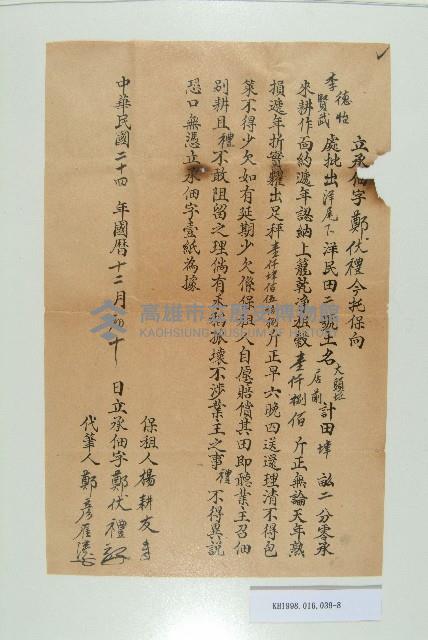 立承佃字鄭伏禮今托保向
李德怡
賢武
處批出洋尾下洋民田二號土名大頭垃店前計田坵畝二分零承
來耕作面約遞年認納上籠乾净租穀壹仟捌佰斤正無論天年熟
損遞年折實糶出足秤壹仟肆佰伍拾斤正早六晚四送還理清不得包
葉不得少欠如有延期少欠係保租人自愿賠償其田即聽業主召佃
別耕且禮不敢阻留之理倘有來歷振壞不涉業主之事禮不得異說
恐口無憑立承佃字壹紙為據
中華民國二十四年國曆十二月初十日立承佃字鄭伏禮
保租人楊耕友
代筆人鄭彥
高雄市立歷史博物館
KAOHSIUNG MUSEUM OF HISTORY
KH1998.016.039-8